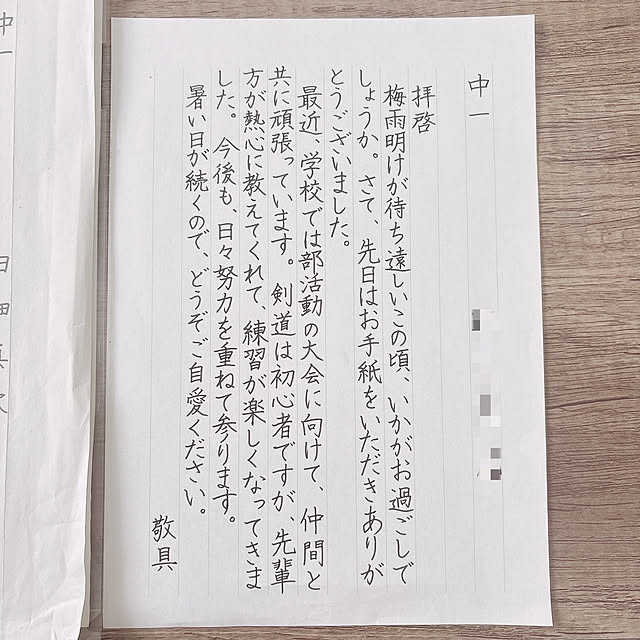 中一
拝啓
梅雨明けが待ち遠しいこの頃、いかがお過ごしで
しょうか。さて、先日はお手紙をいただきありが
とうございました。
最近、学校では部活動の大会に向けて、仲間と
共に頑張っています。剣道は初心者ですが、先輩
方が熱心に教えてくれて、練習が楽しくなってきま
した。今後も、日々努力を重ねて参ります。
暑い日が続くので、どうぞご自愛ください。
敬具
中一